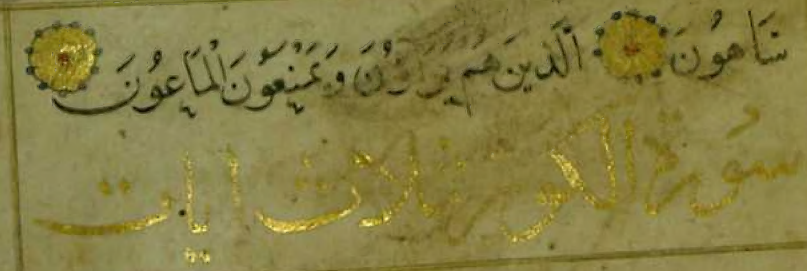 سَاهُونَ الَّذِينَ هُمْ يُرَاؤُنَ وَيَمْنَعُونَ الْمَاعُونَ
سورة الكوثر ثلاث ايات